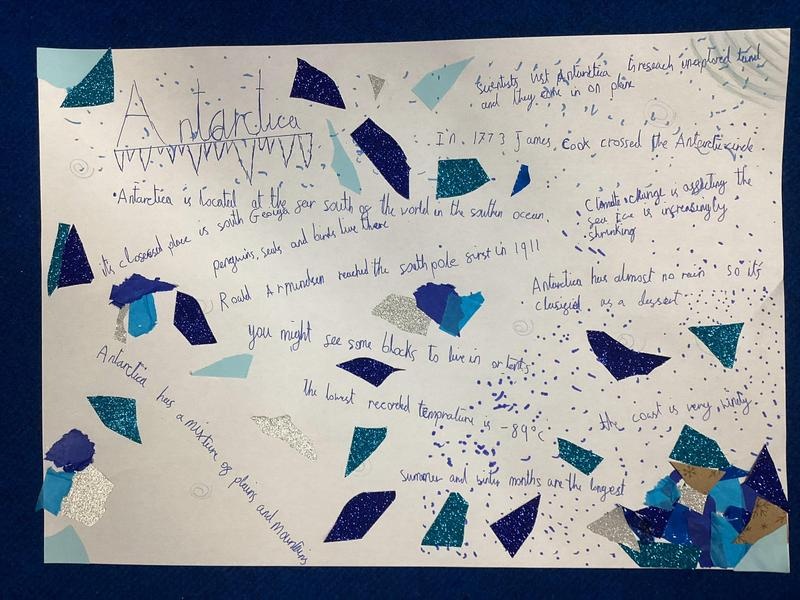 Antarctica
Scientists visit Antarctica to reseach unexplored land
and they come in on plane
In 1773 James Cook crossed the Antarctic circle
•Antarctica is located at the far south of the world in the southen ocean.
its closesed place is south Georgia
penguins, seals and birds live there
Climate change is affecting the
sea Ice is increasingly
shrinking
Roald Armundsen reached the south pole first in 1911
Antarctica has almost no rain so it's
clasified as a dessert
you might see some blocks to live in or tents
Antarctica has a mixture of plains and mountains
The lowest recorded temprature is -89°C
the coast is very windy
Summer and winter months are the longest